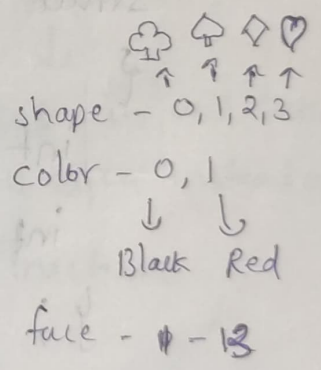 shape - 0, 1, 2, 3
color - 0, 1
Black Red
face - 1 - 13